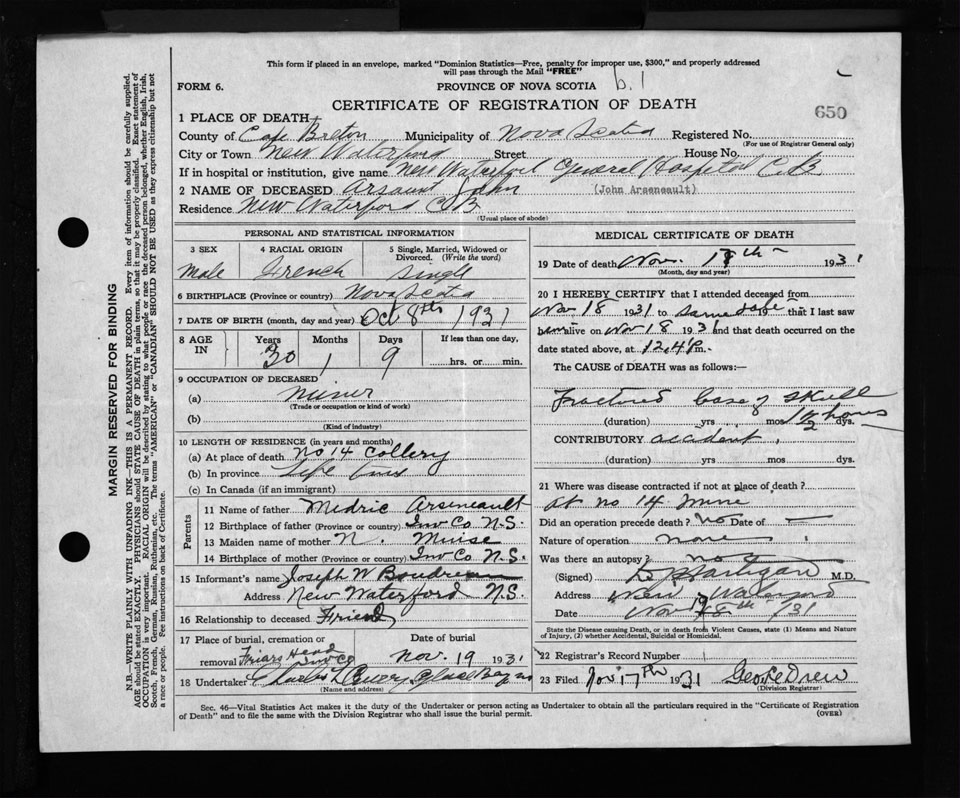 This form if placed in an envelope, marked "Dominion Statistics—Free, penalty for improper use, $300," and properly addressed
will pass through the Mail "FREE"
FORM 6.
PROVINCE OF NOVA SCOTIA b.1
CERTIFICATE OF REGISTRATION OF DEATH
650
1 PLACE OF DEATH
County of Cape Breton Municipality of Nova Scotia Registered No.
(For use of Registrar General only)
City or Town New Waterford Street House No.
If in hospital or institution, give name New Waterford General Hospital C.B.
2 NAME OF DECEASED Arsaunt John (John Arseneault)
Residence New Waterford C.B.
(Usual place of abode)
PERSONAL AND STATISTICAL INFORMATION
3 SEX 4 RACIAL ORIGIN 5 Single, Married, Widowed or
Divorced. (Write the word)
Male French Single
6 BIRTHPLACE (Province or country) Nova Scotia
7 DATE OF BIRTH (month, day and year) Oct 8th 1931
8 AGE IN Years Months Days If less than one day,
30 1 9 hrs. or min.
9 OCCUPATION OF DECEASED
(a) miner
(Trade or occupation or kind of work)
(b)
(Kind of industry)
10 LENGTH OF RESIDENCE (in years and months)
(a) At place of death No 14 Collery
(b) In province Life
(c) In Canada (if an immigrant)
Parents
11 Name of father Medric Arseneault
12 Birthplace of father (Province or country) Inv Co N.S.
13 Maiden name of mother N. Muise
14 Birthplace of mother (Province or country) Inv Co N.S.
15 Informant's name Joseph W Boudreau
Address New Waterford N.S.
16 Relationship to deceased Friend
17 Place of burial, cremation or Date of burial
removal Friars Head Inv Co Nov. 19 1931
18 Undertaker Charles Glace Bay
MEDICAL CERTIFICATE OF DEATH
19 Date of death Nov. 1931
(Month, day and year)
20 I HEREBY CERTIFY that I attended deceased from
Nov 18 1931 to same date 19 that I last saw
him alive on Nov 18 1931 and that death occurred on
date stated above, at 12.4 m.
The CAUSE of DEATH was as follows:—
Fractured base of skull
(duration) yrs. mos. 1½ hours dys.
CONTRIBUTORY accident.
(duration) yrs. mos. dys.
21 Where was disease contracted if not at place of death?
at no 14 mine
Did an operation precede death? no Date of —
Nature of operation none
Was there an autopsy? no
(Signed) M.D.
Address New Waterford
Date Nov /31
State the Disease causing Death, or in death from Violent Causes, state (1) Means and Nature
of Injury, (2) whether Accidental, Suicidal or Homicidal.
22 Registrar's Record Number 1
23 Filed Nov 17th 1931 George Drew
(Division Registrar)
Sec. 46—Vital Statistics Act makes it the duty of the Undertaker or person acting as Undertaker to obtain all the particulars required in the "Certificate of Registration
of Death" and to file the same with the Division Registrar who shall issue the burial permit. (OVER)
MARGIN RESERVED FOR BINDING
WRITE PLAINLY WITH UNFADING INK—THIS IS A PERMANENT RECORD. Every item of information should be carefully supplied.
AGE should be stated EXACTLY. PHYSICIANS should STATE CAUSE OF DEATH in plain terms, so that it may be properly classified. Exact statement of
OCCUPATION is very important. RACIAL ORIGIN will be described by stating to what people or race the deceased person belonged, whether English, Irish,
Scotch, French, German, Russian, Ruthenian, etc. The terms "AMERICAN" or "CANADIAN" SHOULD NOT BE USED as they express citizenship but not
a race or people. Fee instructions on back of Certificate.